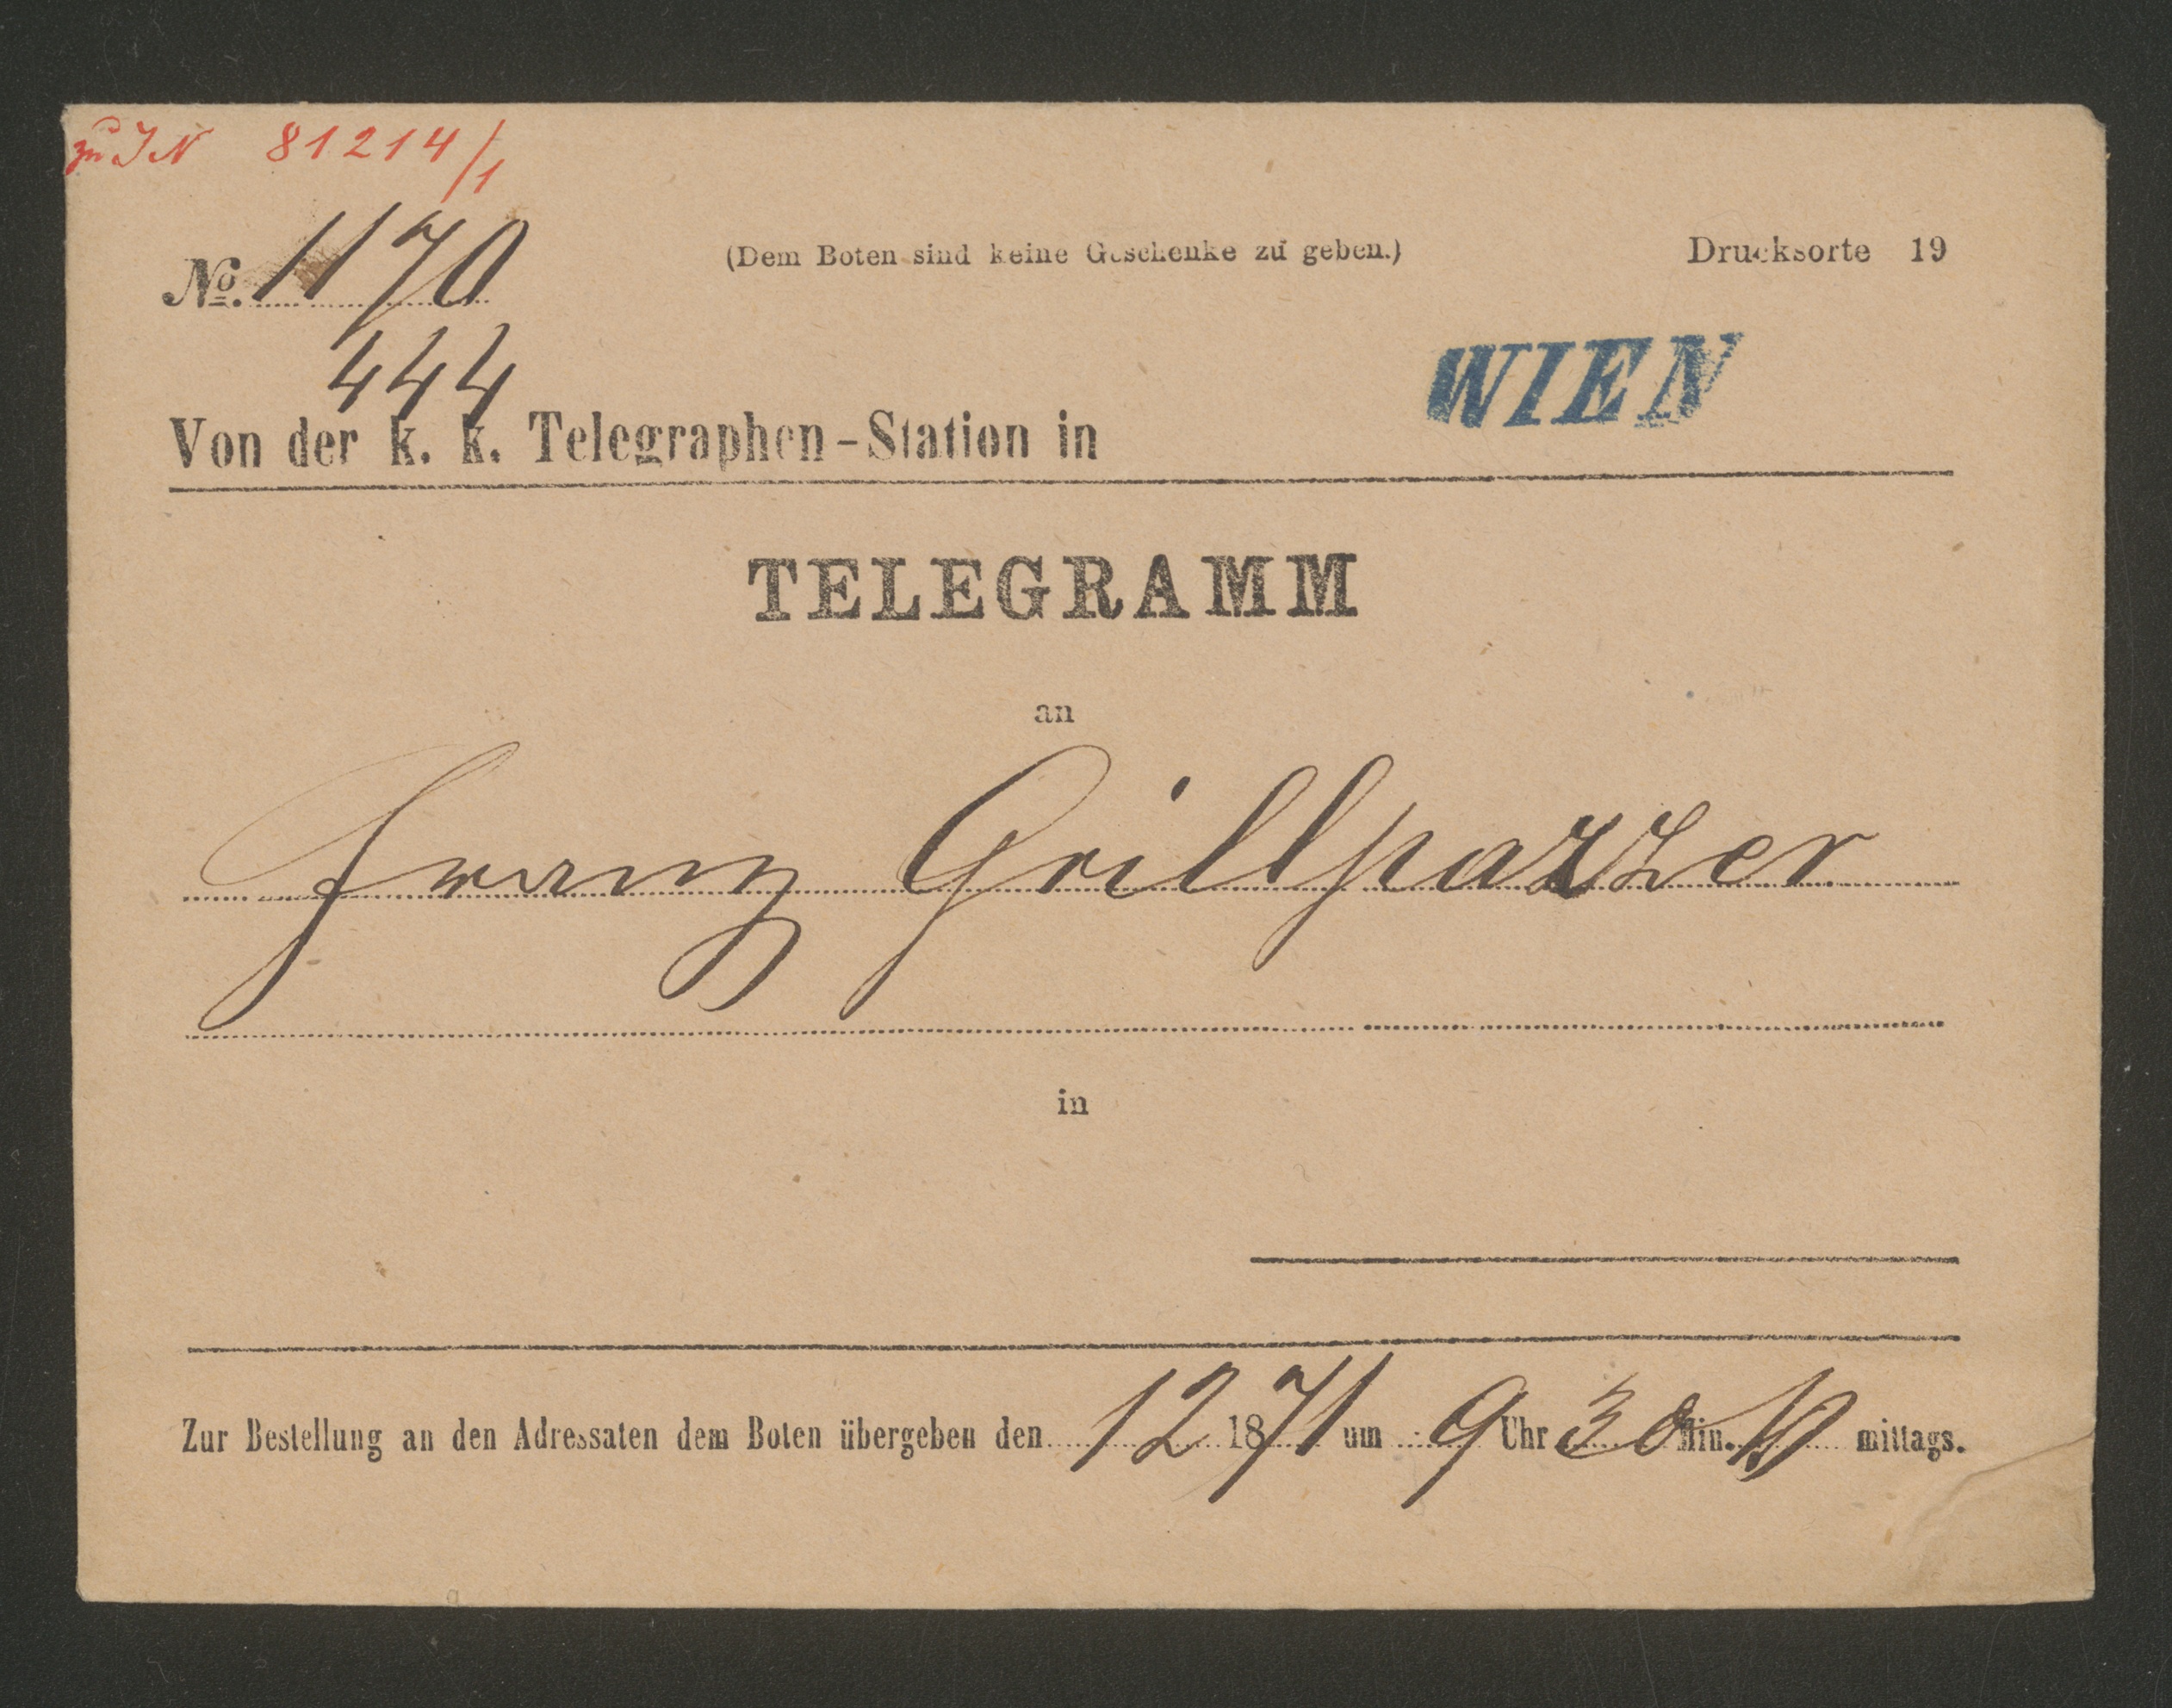 zu IN 81214/1
No. 1170
(Dem Boten sind keine Geschenke zu geben.)
Drucksorte 19
444
WIEN
Von der k. k. Telegraphen-Station in
TELEGRAMM
an
Franz Grillparzer
in
Zur Bestellung an den Adressaten dem Boten übergeben den 12 1871 um 9 Uhr 30 Min. mittags.